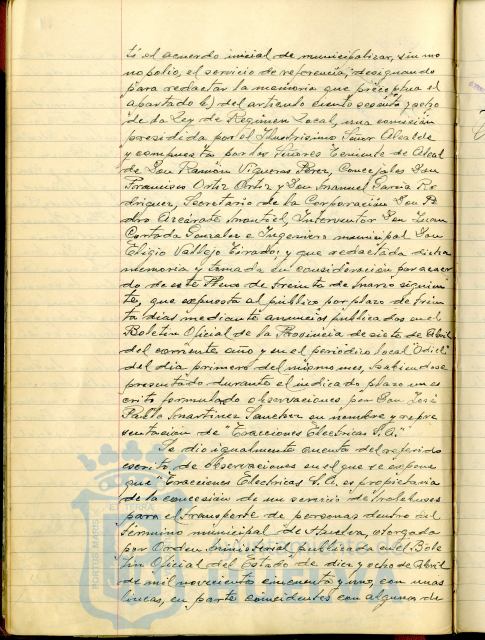 tó el acuerdo inicial de municipalizar, sin mo
nopolio, el servicio de referencia, designando
para redactar la memoria que preceptua el
apartado b) del artículo ciento sesenta y ocho
de la Ley de Régimen Local, una comisión
presidida por el Ilustrísimo Señor Alcalde
y compuesta por los Señores Teniente de Alcal
de Don Ramón Vigueras Pérez, Concejales Don
Francisco Ortiz Ortiz y Don Manuel Garcia Ro
driguez, Secretario de la Corporación Don Pe
dro Azcárate Montiel, Interventor Don Juan
Cortada Gonzalez e Ingeniero municipal Don
Eligio Vallejo Tirado; y que redactada dicha
memoria y tomada en consideración por acuer
do de este Pleno de treinta de Marzo siguien
te, fue expuesta al público por plazo de trein
ta días mediante anuncios publicados en el
Boletín Oficial de la Provincia de siete de Abril
del corriente año y en el periódico local "Odiel"
del día primero del mismo mes, habiendose
presentado durante el indicado plazo un es
crito formulado observaciones por Don José
Pablo Martinez Sanchez en nombre y repre
sentación de "Tracciones Electricas S.A."
Se dio igualmente cuenta del referido
escrito de observaciones en el que se expone
que "Tracciones Electricas S.A. es propietaria
de la concesión de un servicio de trolebuses
para el transporte de personas dentro del
término municipal de Huelva, otorgada
por Orden Ministerial publicada en el Bole
tín Oficial del Estado" de diez y ocho de Abril
de mil novecientos cincuenta y uno, con unas
lineas, en parte coincidentes con algunas de
PORTUS MARIS
ET TERRA